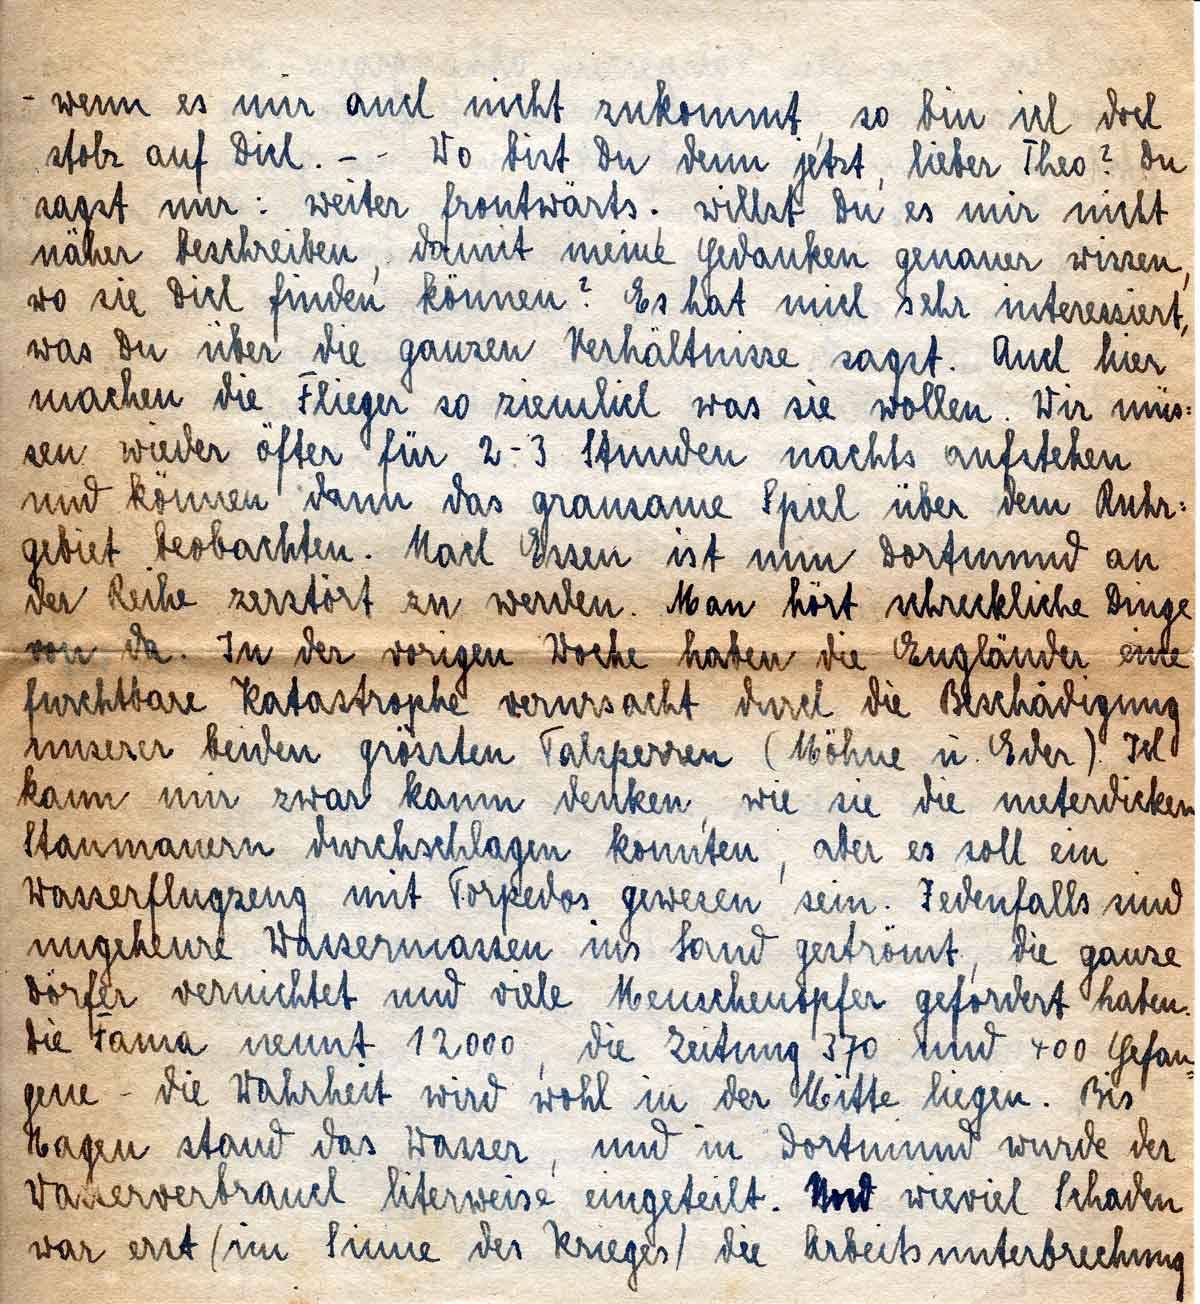 - wenn es mir auch nicht zukommt, so bin ich doch
stolz auf Dich. - - Wo bist Du denn jetzt, lieber Theo? Du
sagst nur: weiter frontwärts. Willst Du es mir nicht
näher beschreiben, damit meine Gedanken genauer wissen,
wo sie Dich finden können? Es hat mich sehr interessiert,
was Du über die ganzen Verhältnisse sagst. Auch hier
machen die Flieger so ziemlich was sie wollen. Wir müs=
sen wieder öfter für 2-3 Stunden nachts aufstehen
und können dann das grausame Spiel über dem Ruhr=
gebiet beobachten. Nach Essen ist nun Dortmund an
der Reihe zerstört zu werden. Man hört schreckliche Dinge
von da. In der vorigen Woche haben die Engländer eine
furchtbare Katastrophe verursacht durch die Beschädigung
unserer beiden grössten Talsperren (Möhne u. Eder). Ich
kann mir zwar kaum denken, wie sie die meterdicken
Staumauern durchschlagen konnten, aber es soll ein
Wasserflugzeug mit Torpedos gewesen sein. Jedenfalls sind
ungeheure Wassermassen ins Land geströmt, die ganze
Dörfer vernichtet und viele Menschenopfer gefordert haben.
Die Fama nennt 12000, die Zeitung 370 und 400 Gefan=
gene - die Wahrheit wird wohl in der Mitte liegen. Bis
Hagen stand das Wasser, und in Dortmund wurde der
Wasserverbrauch literweise eingeteilt. Und wieviel Schaden
war erst (im Sinne des Krieges) die Arbeitsunterbrechung